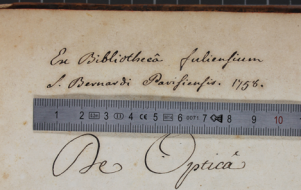 Ex Bibliothecâ fuliensium
S. Bernardi Parisiensis. 1758.
1 2 3 4 5 6 7 8 9 10
De Opticâ